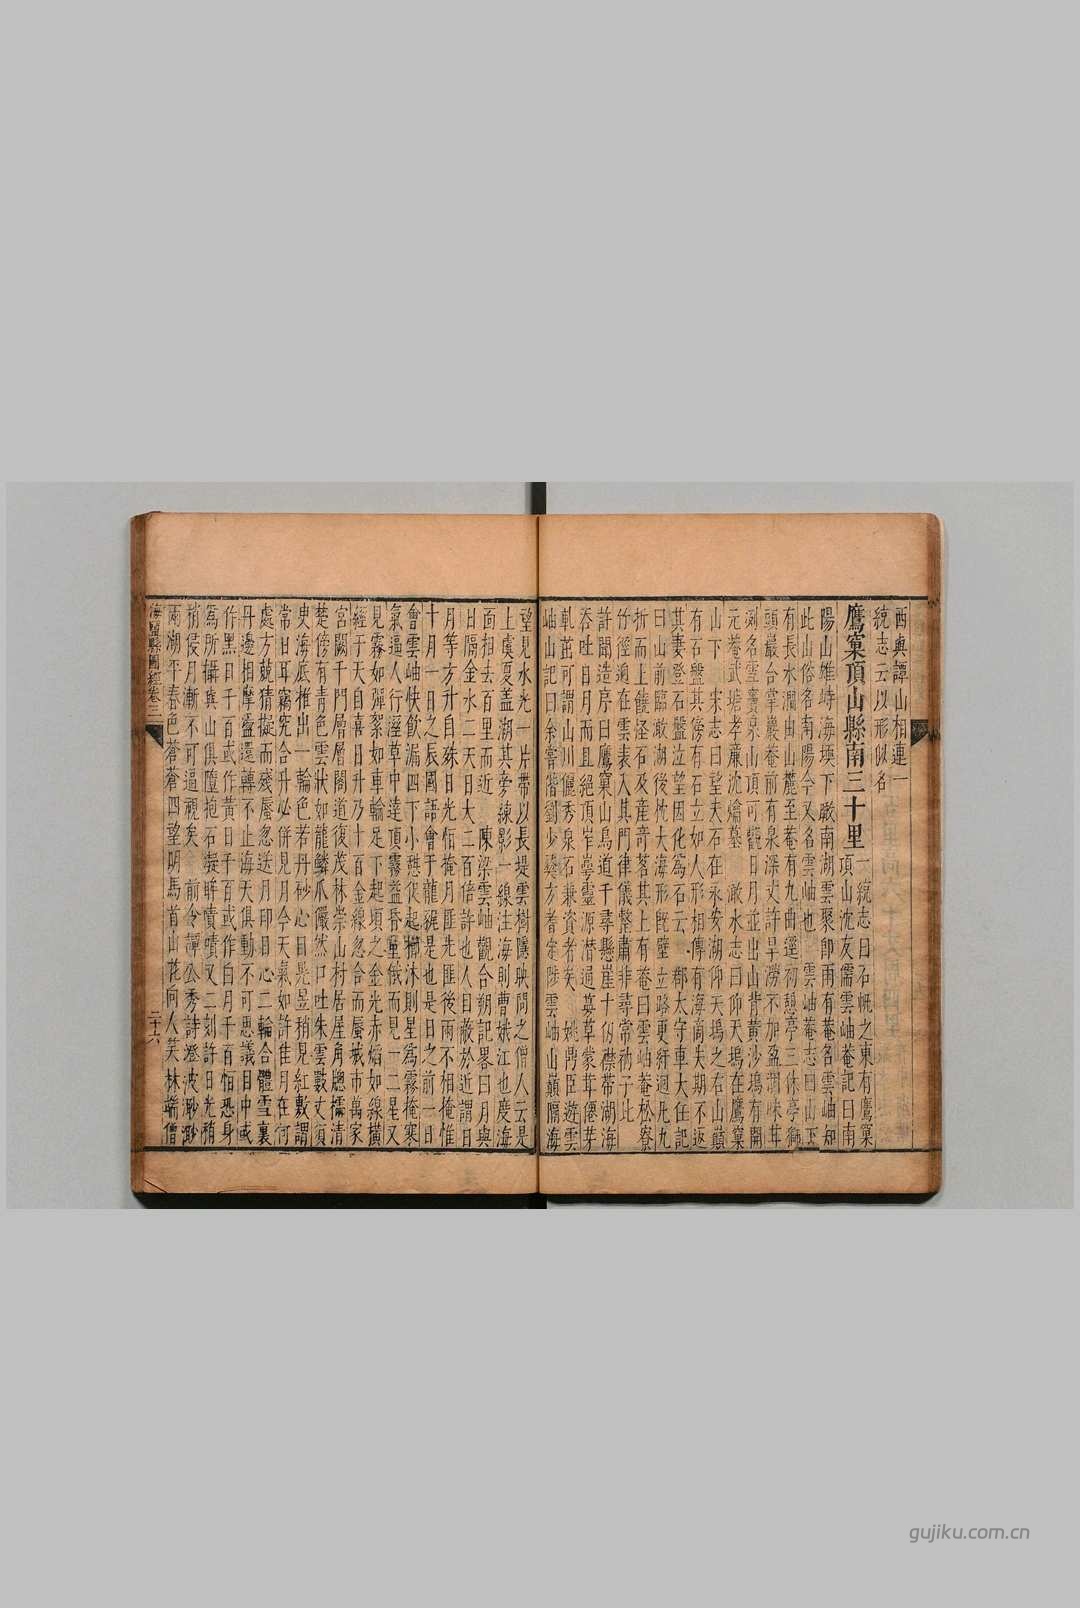 西與譚山相連一
統志云以形似名
鷹窠頂山縣南三十里
一統志曰石帆之東有鷹窠
頂山沈友儒雲岫菴記曰南
陽山雄峙海堧下瞰南湖雲聚卽雨有菴名雲岫知
此山俗名南陽今又名雲岫也 雲岫菴志曰山下
有長水澗由山麓至菴有九曲逕初憩亭三休亭獅
頭巖合掌巖菴前有泉深丈許旱澇不加盈涸味甘
冽名雪竇泉山頂可觀日月並出山背黄沙塢有開
元菴武塘孝廉沈爚墓 澉水志曰仰天塢在鷹窠
山下 宋志曰望夫石在永安湖仰天塢之右山巔
有石盤其傍有石立如人形相傳有海商失期不返
其妻登石盤泣望因化爲石云 太守車大任記
曰山前臨澉湖後枕大海形旣壁立路更紆迴凡九
折而上饒怪石及産奇茗其上有菴曰雲岫菴松寮
竹徑遍在雲表入其門律儀整肅非尋常衲子比
許聞造序曰鷹窠山鳥道千尋懸崖十仞襟帶湖海
吞吐日月而且絶頂岝崿靈源潛通募草蒙茸僊芽
乹茁可謂山川儷秀泉石兼資者矣 姚鼎臣遊雲
岫山記曰余嘗偕劉少方陟雲岫山巔隔海
望見水光一片帶以長堤雲樹隱映問之僧人云是
上虞夏蓋湖其旁練影一線注海則曹娥江也度海
面相去百里而近 陳梁雲岫觀合朔記畧曰月與
日隔金水二天日大二百倍許也人目敵於近謂日
月等方升自殊日光恒掩月匪先匪後兩不相掩惟
十月一日之辰國語會于龍尾是也是日之前一日
會雲岫快飲漏四下小憩促起櫛沐則星爲霧掩寒
氣逼人行溼草中達頂霧益昏量俄而見一二星又
見霧如彈絮如車輪足下起頃之金光赤熖如線橫
經于天自喜日升乃十百金線忽合而蜃城市萬家
宮闕千門層層閣道復茂林崇山村居屋角牕櫺清
楚傍有青色雲狀如龍鱗爪儼然口吐朱雲數丈須
臾海底推出一輪色若丹砂心日晃昱稍見紅敷謂
常旧耳竊究合丹必併見月今天氣如許隹月在何
處方競猜擬而殘蜃忽送月印日心二輪合體雪裏
丹邊相摩盪還轉不止海天俱動不可思議目中或
作黑日千百或作黄日千百或作白月千百恒恐身
爲所攝與山俱墮抱石凝眸憒憒又二刻許日光稍
稍侵月漸不可逼視矣 前令譚公秀詩澄波渺渺
兩湖平春色蒼蒼四望明馬首山花向人笑林端僧
海鹽縣圖經卷三
二十六
gujiku.com.cn